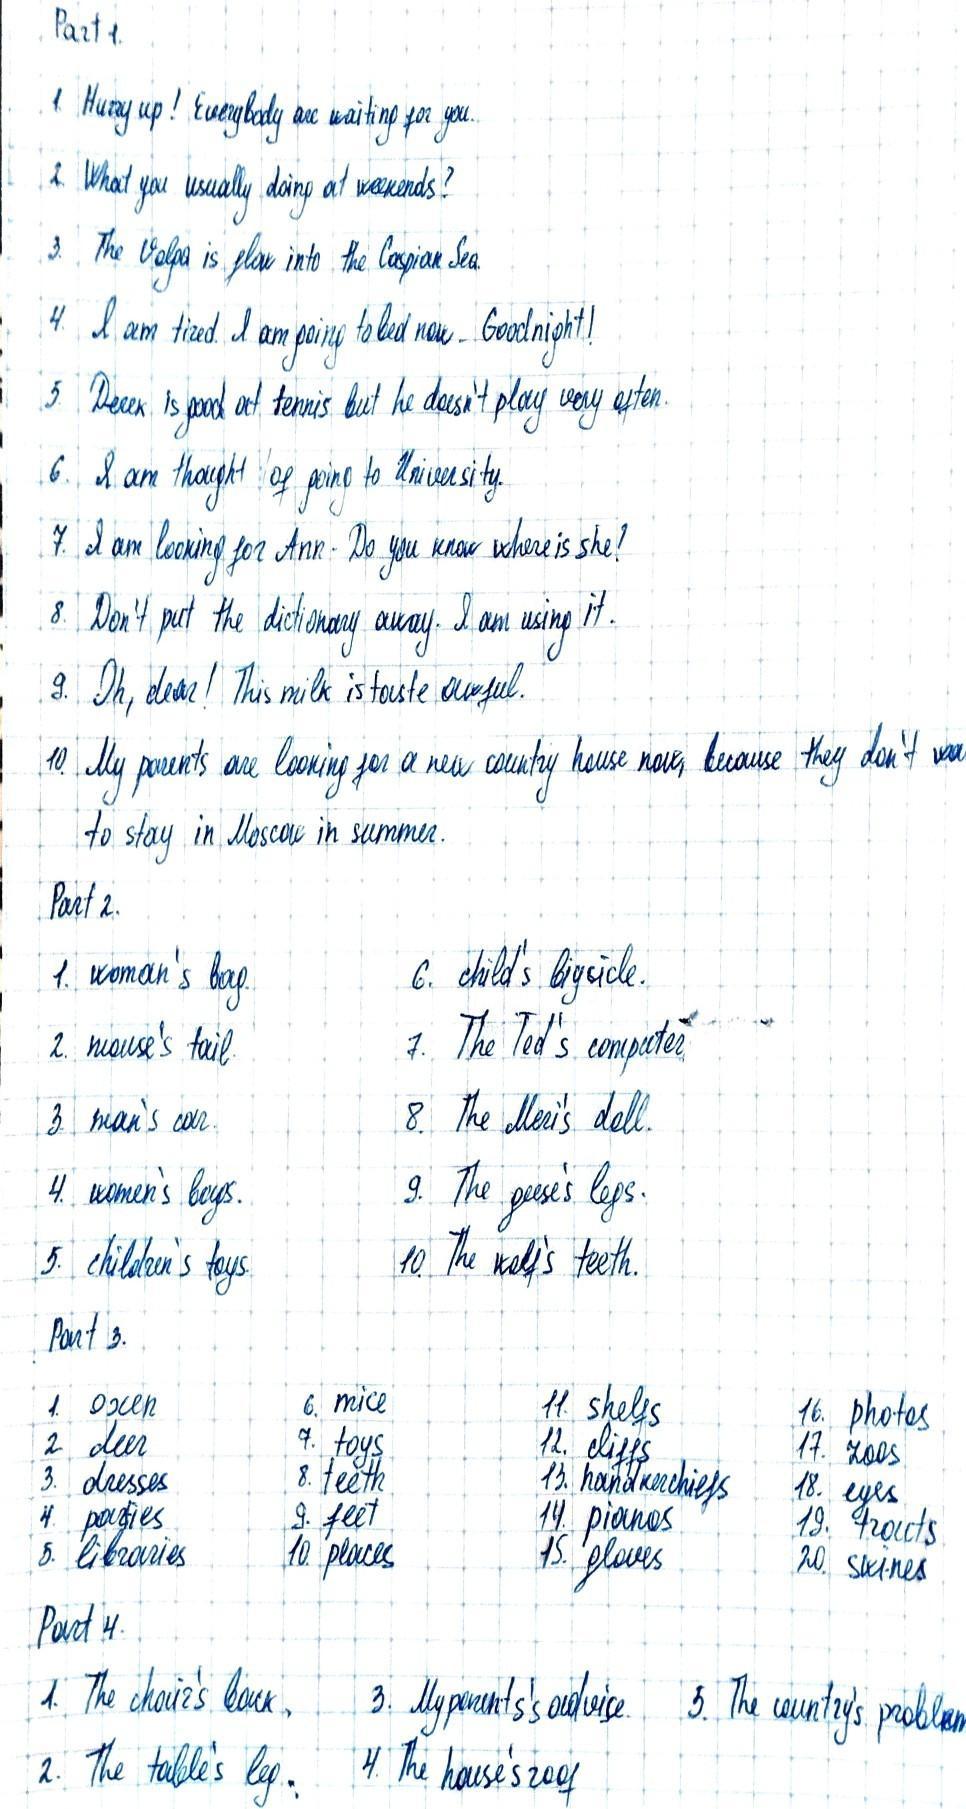 Part 1.
1. Hurry up! Everybody are waiting for you.
2. What you usually doing at weekends?
3. The Volga is flow into the Caspian Sea.
4. I am tired. I am going to bed now. Goodnight!
5. Derek is good at tennis but he doesn't play very often.
6. I am thought of going to University.
7. I am looking for Ann. Do you know where is she?
8. Don't put the dictionary away. I am using it.
9. Oh, dear! This milk is taste awful.
10. My parents are looking for a new country house now, because they don't wa
to stay in Moscow in summer.
Part 2.
1. woman's bag. 6. child's bigsicle.
2. mouse's tail. 7. The Ted's computer.
3. man's car. 8. The Meri's doll.
4. women's bags. 9. The geese's legs.
5. children's toys. 10. The wolf's teeth.
Part 3.
1. oxen 6. mice 11. shelfs 16. photos
2. deer 7. toys 12. cliffs 17. zoos
3. dresses 8. teeth 13. handkerchiefs 18. eyes
4. parties 9. feet 14. pianos 19. tracts
5. libraries 10. places 15. gloves 20. swines
Part 4.
1. The chair's back. 3. My parents's advise. 5. The country's problem
2. The table's leg. 4. The house's roof